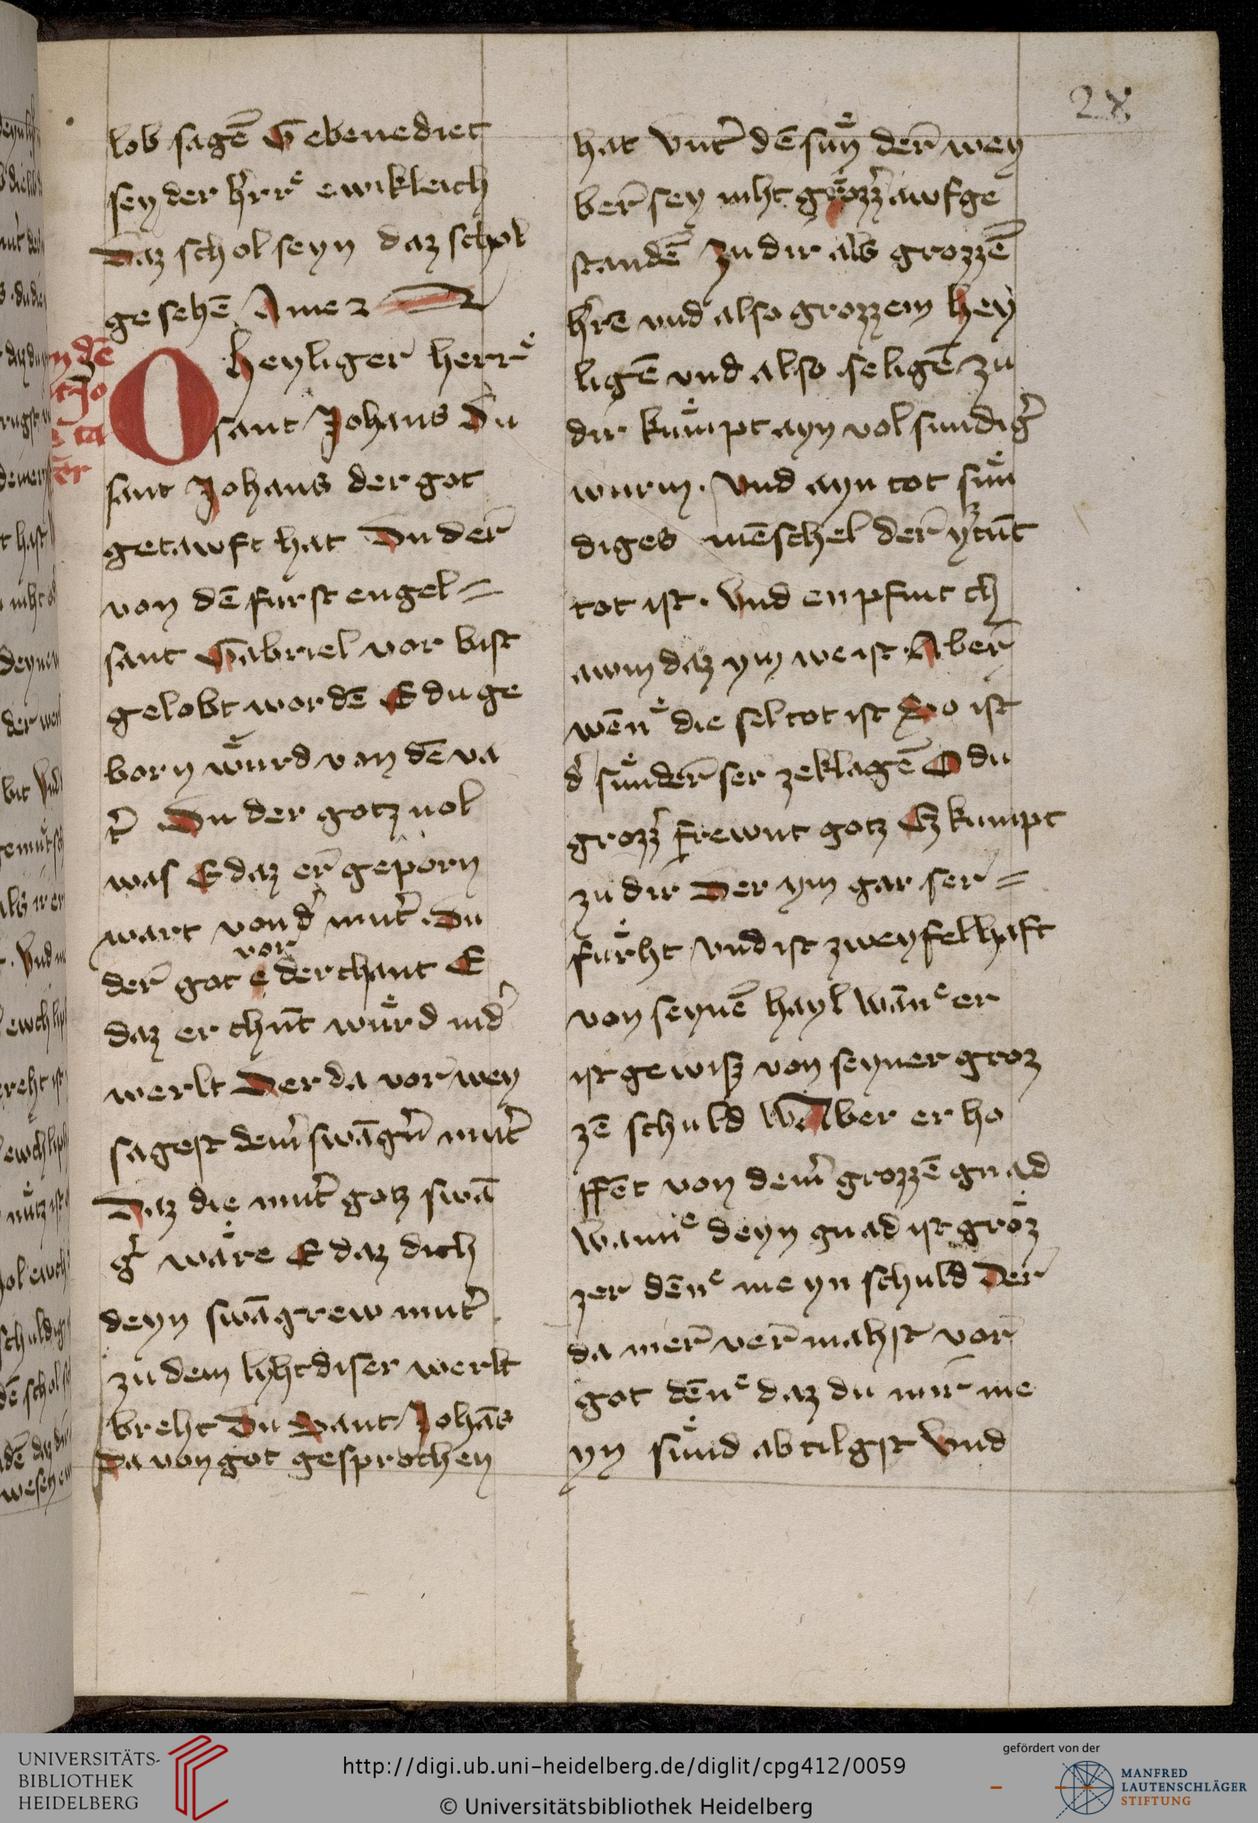 28
lob sagē Gebenediet
sey der hˀrrͤ ewikleich
Daz schol seyn daz schol
gesehē Amen
O heyliger herrͤ
sant Johans Du
sant Johans der got
getawft hat Du der
von dē fürst engel =
sant Gabriel vor bist
gelobt wordē E du ge
born wuͤrd von dē va
tˀ Du der gotz uol
was E daz er geporn
wart von dˀ mutˀ. Du
vor
der got e derchant E
daz er chūt wuͤrd in dˀ
werlt Der da vor wey
sagest demˀ swāgˀn mutˀ
Daz die mutˀ gotz swā
gˀ waͤre E daz dich
deyn swāgrew mutˀ
zu dem lyht diser werlt
breht Du Sant Johās
Da von got gesprochen
hat Vntˀ dē suͤn der wey
ber sey niht groͤzzˀ awfge
standē zu dir als grozzē
hˀrē vnd also grozzem hey
ligē vnd also seligē zu
dir kuͤmpt ayn vol sundigˀ
wurm. Vnd ayn tot suͤn
diges mēschel der yˀcūt
tot ist. Vnd enpfint ch
awm daz ym we ist Aber
wēnͤ die sel tot ist So ist
dˀ suͤnder ser zeklagē O du
grozzˀ frewnt gotz Ez kumpt
zu dir Der ym gar ser =
fuͤrht Vnd ist zweyfelhaft
von seynē hayl Wānͤ er
ist gewisz von seyner groz
zē schuld W Aber er ho
ffēt von demˀ grozzē gnad
Wannͤ deyn gnad ist groͤz
zer dēnͤ meyn schuld Der
da mer vermahst vor
got dēnͤ daz du mir me
yn suͤnd abtilgst Vnd
UNIVERSITÄTS-
BIBLIOTHEK
HEIDELBERG
http://digi.ub.uni-heidelberg.de/diglit/cpg412/0059
© Universitätsbibliothek Heidelberg
gefördert von der
MANFRED
LAUTENSCHLÄGER
STIFTUNG